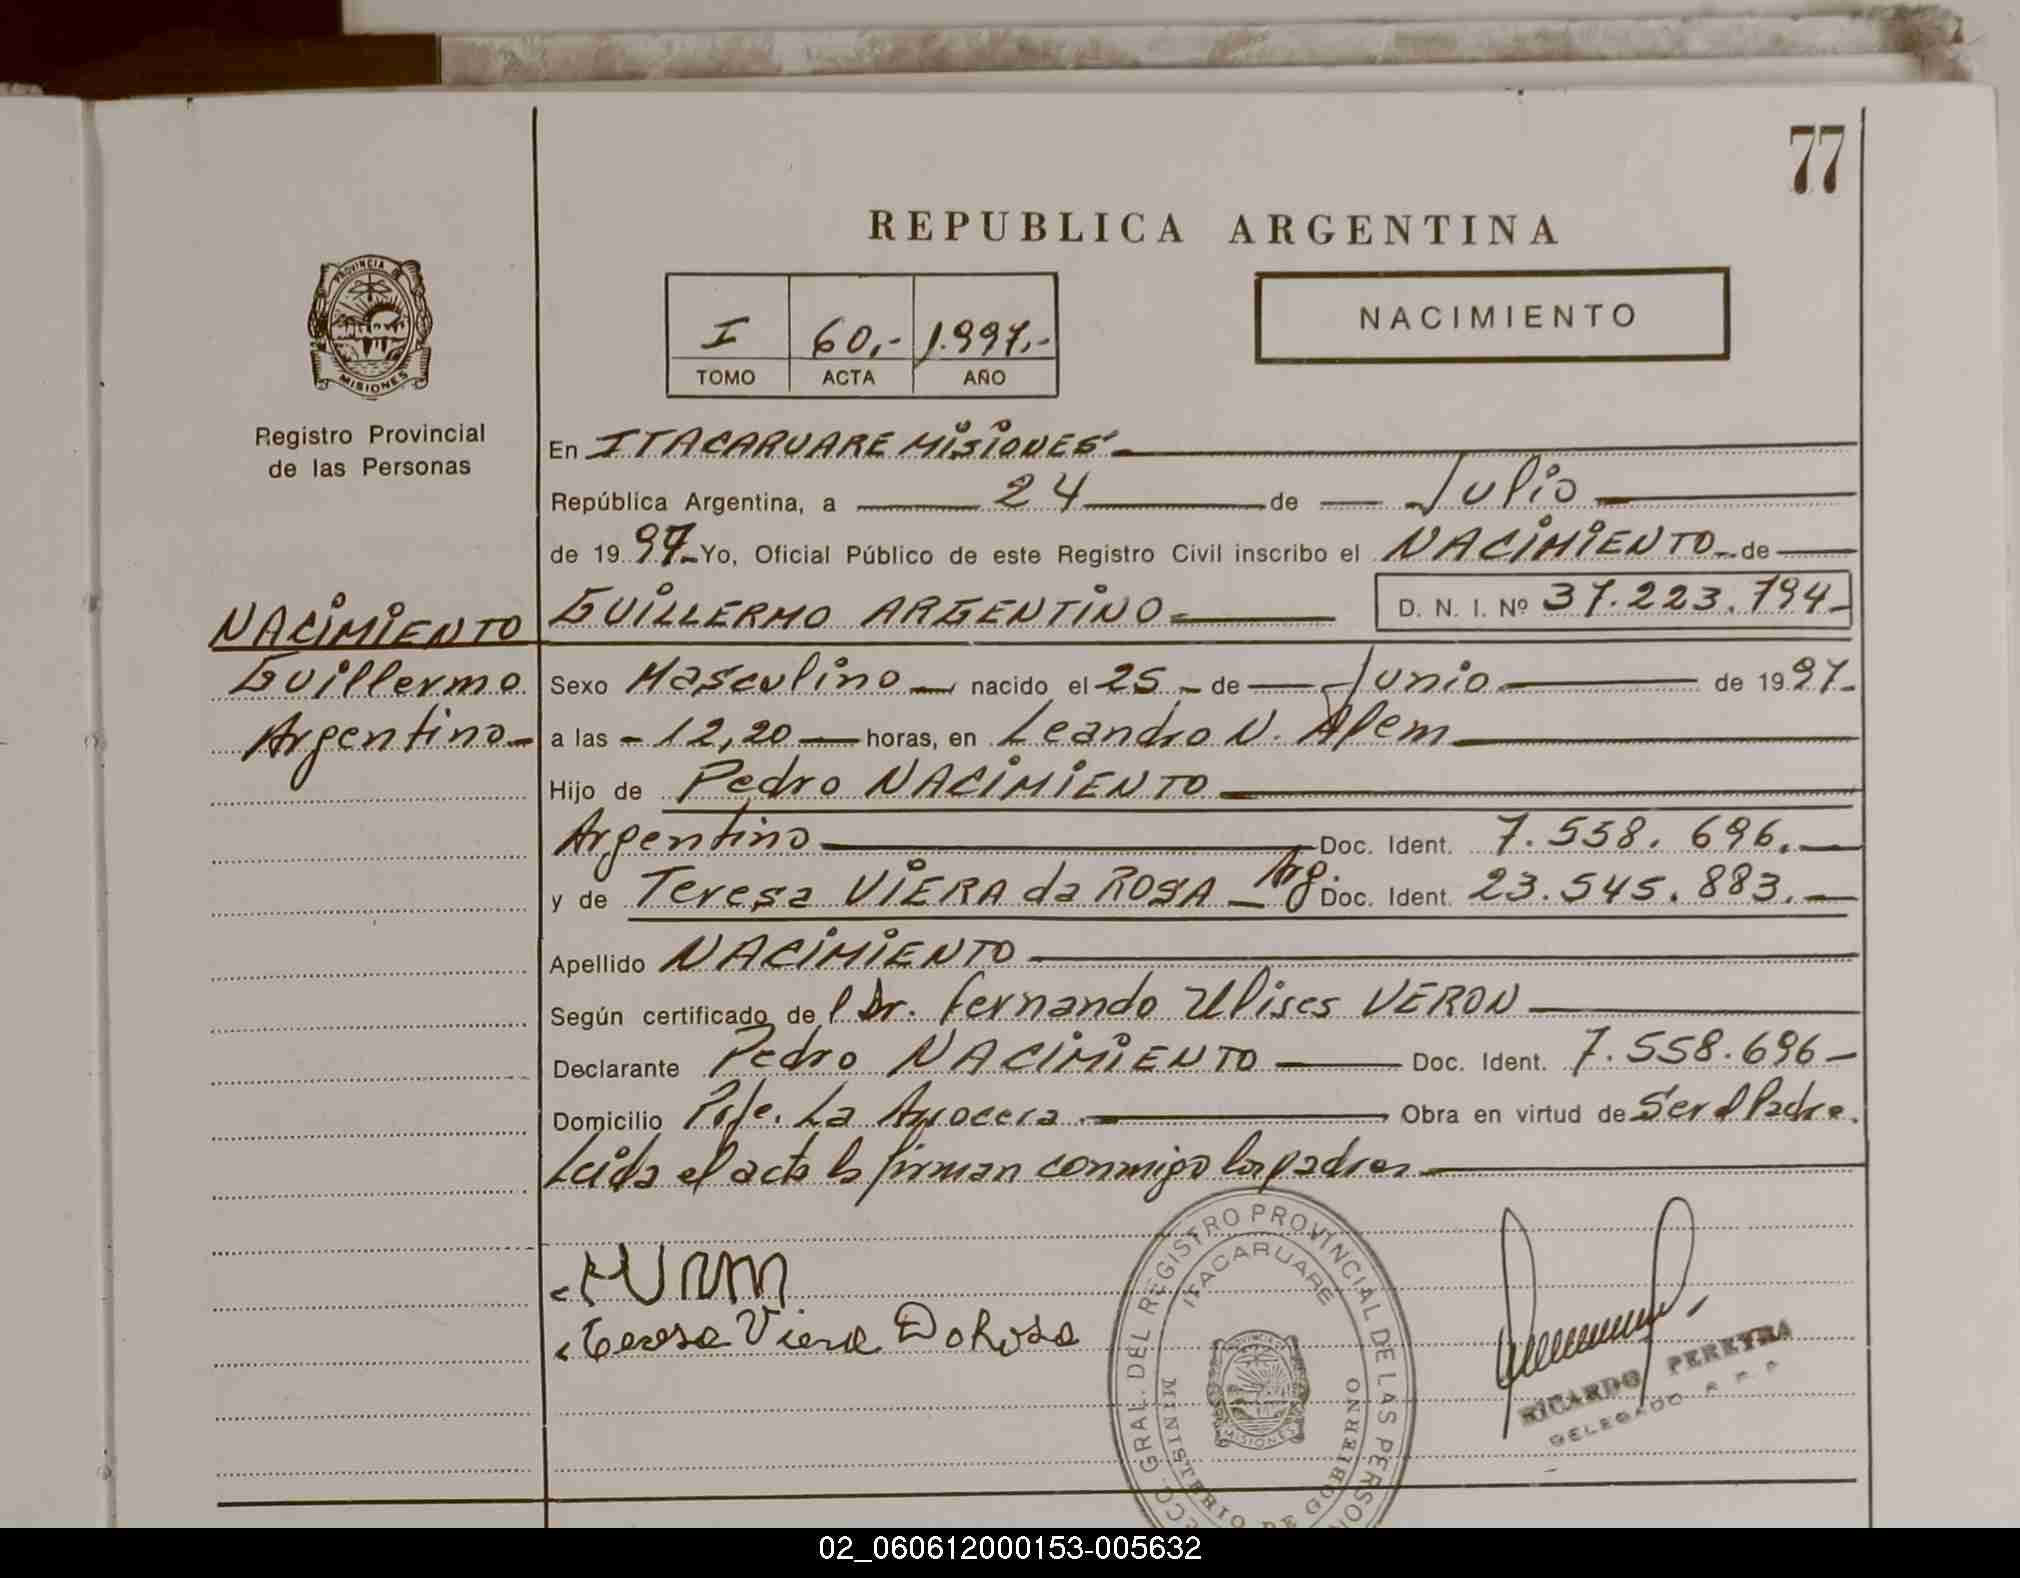 77
REPUBLICA ARGENTINA
PROVINCIA DE
MISIONES
Registro Provincial
de las Personas
I 60,- 1.997,-
TOMO ACTA AÑO
NACIMIENTO
En ITACARUARE MISIONES
República Argentina, a 24 de Julio
de 1997 Yo, Oficial Público de este Registro Civil inscribo el NACIMIENTO de
NACIMIENTO
Guillermo
Argentino
GUILLERMO ARGENTINO D. N. I. Nº 37.223.794
Sexo Masculino nacido el 25 de Junio de 1997
a las 12,20 horas, en Leandro N. Alem
Hijo de Pedro NACIMIENTO
Argentino Doc. Ident. 7.558.696.
y de Teresa VIERA da ROSA Arg. Doc. Ident. 23.545.883.
Apellido NACIMIENTO
Según certificado de l Dr. Fernando Ulises VERON
Declarante Pedro NACIMIENTO Doc. Ident. 7.558.696
Domicilio La Arrocera Obra en virtud de Ser el Padre.
Leida el acta la firman conmigo los padres
Teresa Viera DaRosa
GRAL. DEL REGISTRO PROVINCIAL DE LAS
ITACARUARE
PROVINCIA DE
MISIONES
MINISTERIO DE GOBIERNO
RICARDO PEREYRA
DELEGADO R P P
02_060612000153-005632